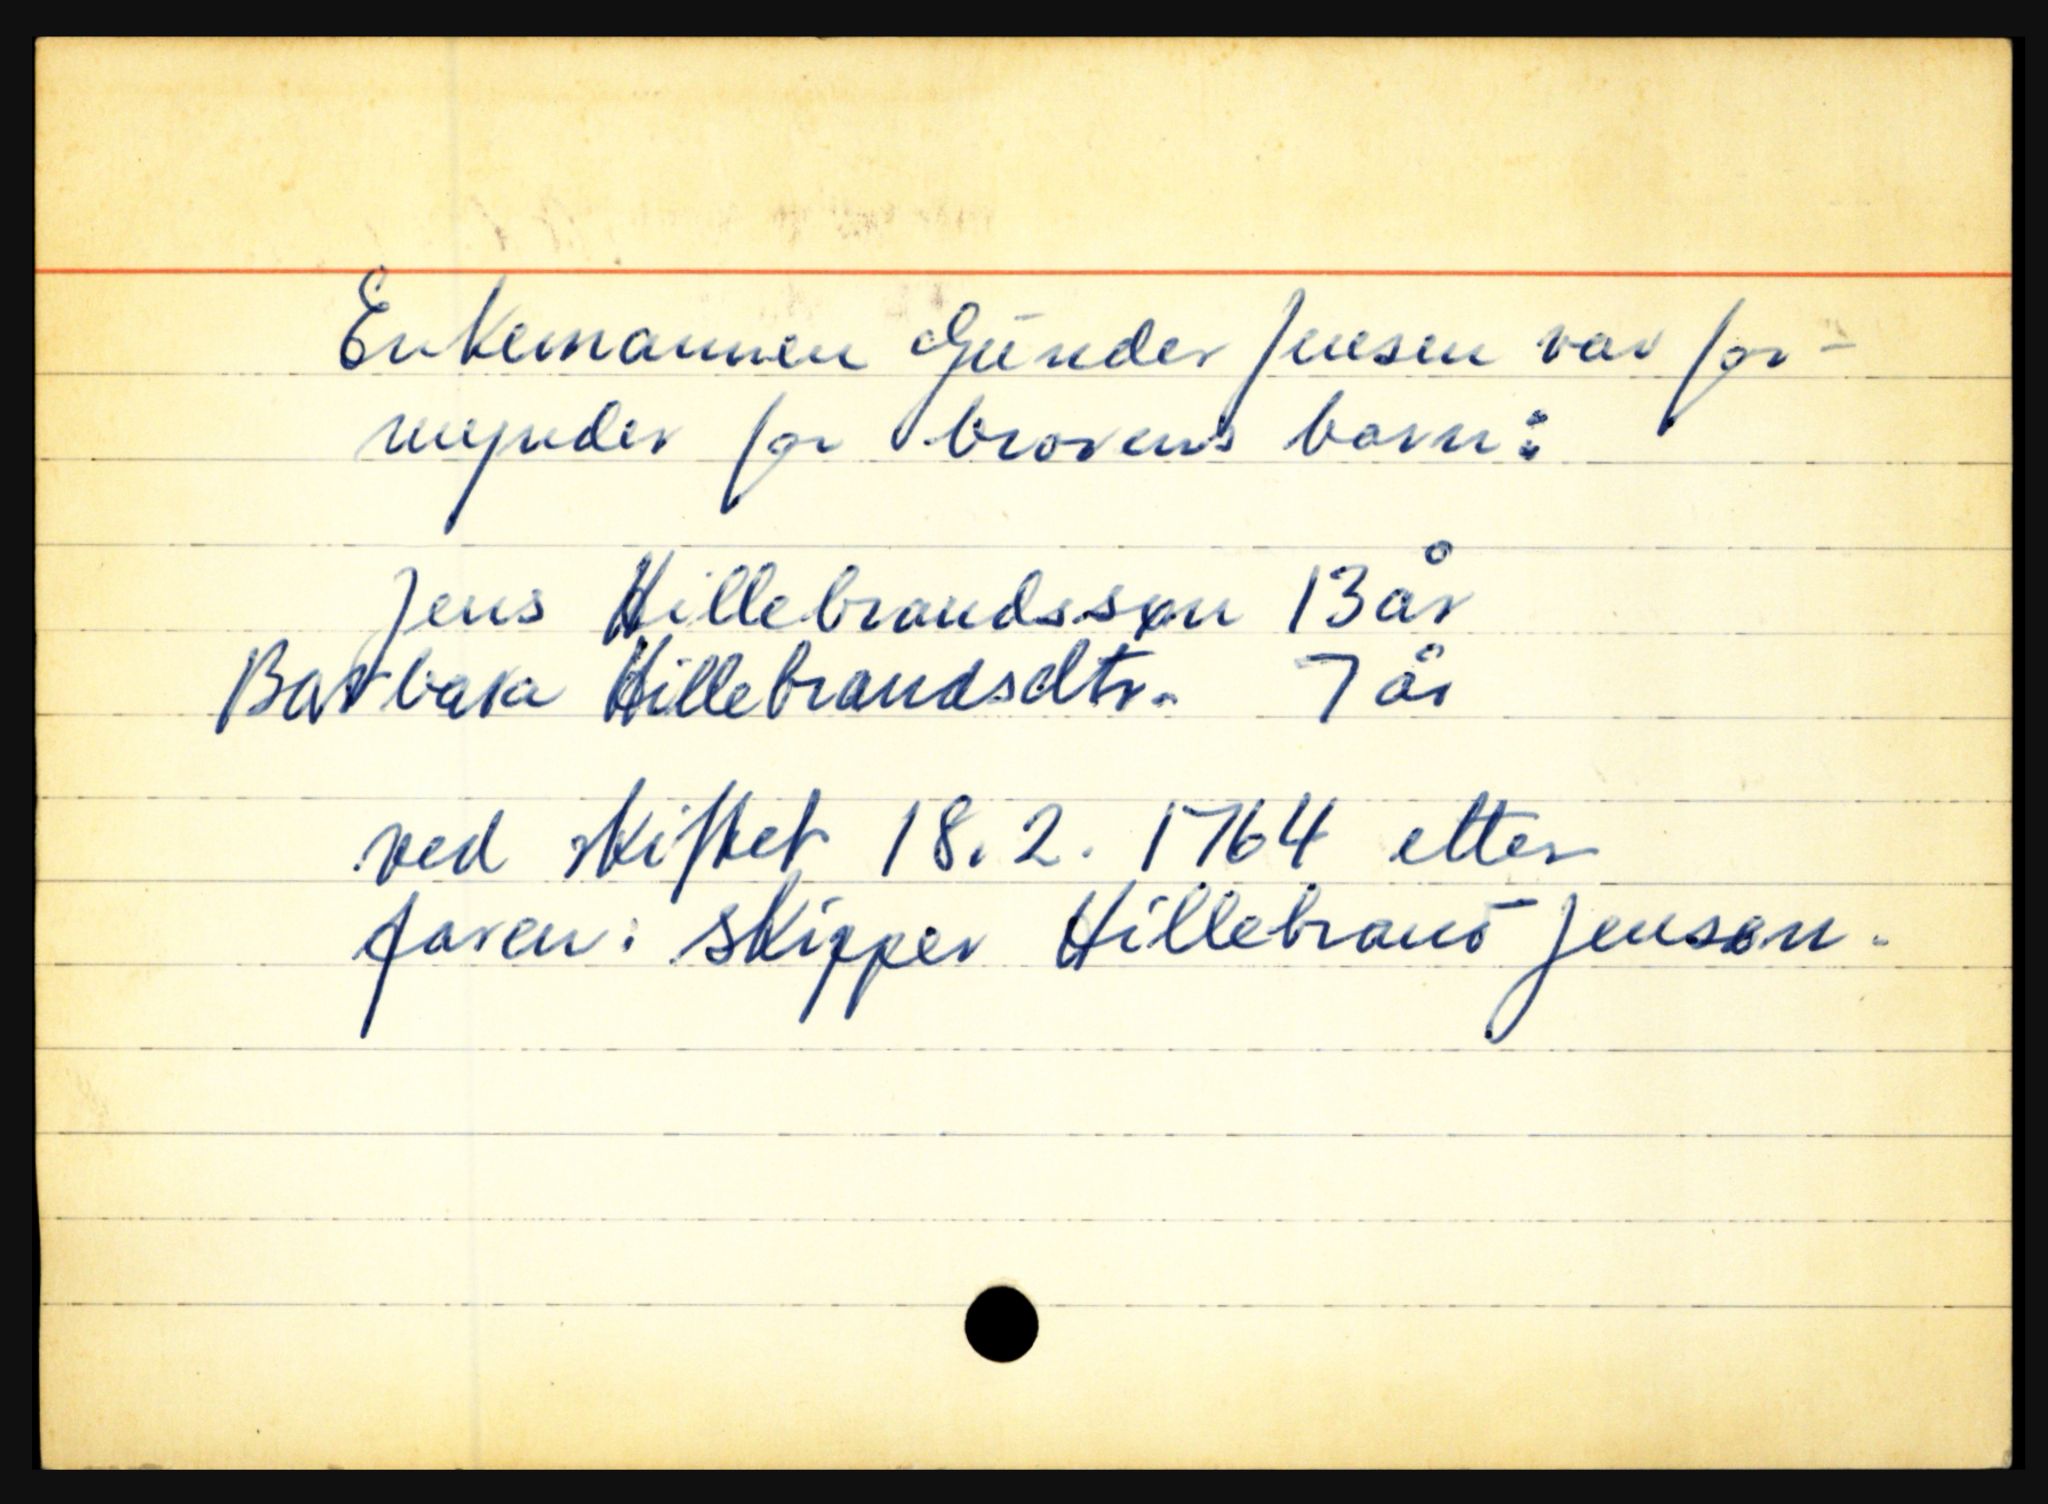 Enkemannen Gunder Jensen var for-
mynder for brorens barn:
Jens Hillebrandssøn 13 år
Barbara Hillebrandsdtr. 7 år
ved skiftet 18.2.1764 etter
faren: skipper Hillebrand Jensen.